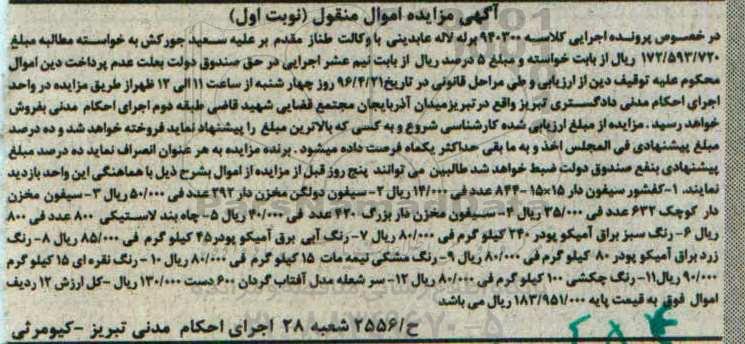 آگهی مزایده اموال منقول (نوبت اول)
در خصوص پرونده اجرایی کلاسه ۹۴۰۳۰۰ برله لاله عابدینی با وکالت طناز مقدم بر علیه سعید جورکش به خواسته مطالبه مبلغ
۱۷۲/۵۹۳/۷۲۰ ریال از بابت خواسته و مبلغ ۵ درصد ریال از بابت نیم عشر اجرایی در حق صندوق دولت بعلت عدم پرداخت دین اموال
محکوم علیه توقیف دین از ارزیابی و طی مراحل قانونی در تاریخ ۹۶/۴/۲۱ روز چهار شنبه از ساعت ۱۱ الی ۱۲ ظهر از طریق مزایده در واحد
اجرای احکام مدنی دادگستری تبریز واقع در تبریز میدان آذربایجان مجتمع قضایی شهید قاضی طبقه دوم اجرای احکام مدنی بفروش
خواهد رسید. مزایده از مبلغ ارزیابی شده کارشناسی شروع و به کسی که بالاترین مبلغ را پیشنهاد نماید فروخته خواهد شد و ده درصد
مبلغ پیشنهادی فی المجلس اخذ و به ما بقی حداکثر یکماه فرصت داده میشود. برنده مزایده به هر عنوان انصراف نماید ده درصد مبلغ
پیشنهادی بنفع صندوق دولت ضبط خواهد شد طالبین می توانند پنج روز قبل از مزایده از اموال بشرح ذیل با هماهنگی این واحد بازدید
نمایند. ۱-کفشور سیفون دار ۱۵×۱۵-۸۴۴ عدد فی ۱۴/۰۰۰ ریال ۲-سیفون دولگن مخزن دار ۲۹۲ عدد فی ۵۰/۰۰۰ ریال ۳-سیفون مخزن
دار کوچک ۶۳۲ عدد فی ۳۵/۰۰۰ ریال ۴-سیفون مخزن دار بزرگ ۴۲۰ عدد فی ۴۰/۰۰۰ ریال ۵-چاه بند لاستیکی ۸۰۰ عدد فی ۸۰۰
ریال ۶-رنگ سبز براق آمیکو پودر ۲۴۰ کیلو گرم فی ۸۰/۰۰۰ ریال ۷-رنگ آبی برق آمیکو پودر ۴۵ کیلو گرم فی ۸۵/۰۰۰ ریال ۸-رنگ
زرد براق آمیکو پودر ۸۰ کیلو گرم فی ۸۰/۰۰۰ ریال ۹-رنگ مشکی نیمه مات ۱۵ کیلو گرم فی ۸۰/۰۰۰ ریال ۱۰-رنگ نقره ای ۱۵ کیلو گرم
۹۰/۰۰۰ ریال ۱۱-رنگ چکشی ۱۰۰ کیلو گرم فی ۸۰/۰۰۰ ریال ۱۲-سر شعله مدل آفتاب گردان ۶۰۰ دست ۱۳۰/۰۰۰ ریال -کل ارزش ۱۲ ردیف
اموال فوق به قیمت پایه ۱۸۳/۹۵۱/۰۰۰ ریال می باشد
ح/۲۵۵۶ شعبه ۲۸ اجرای احکام مدنی تبریز -کیومرثی